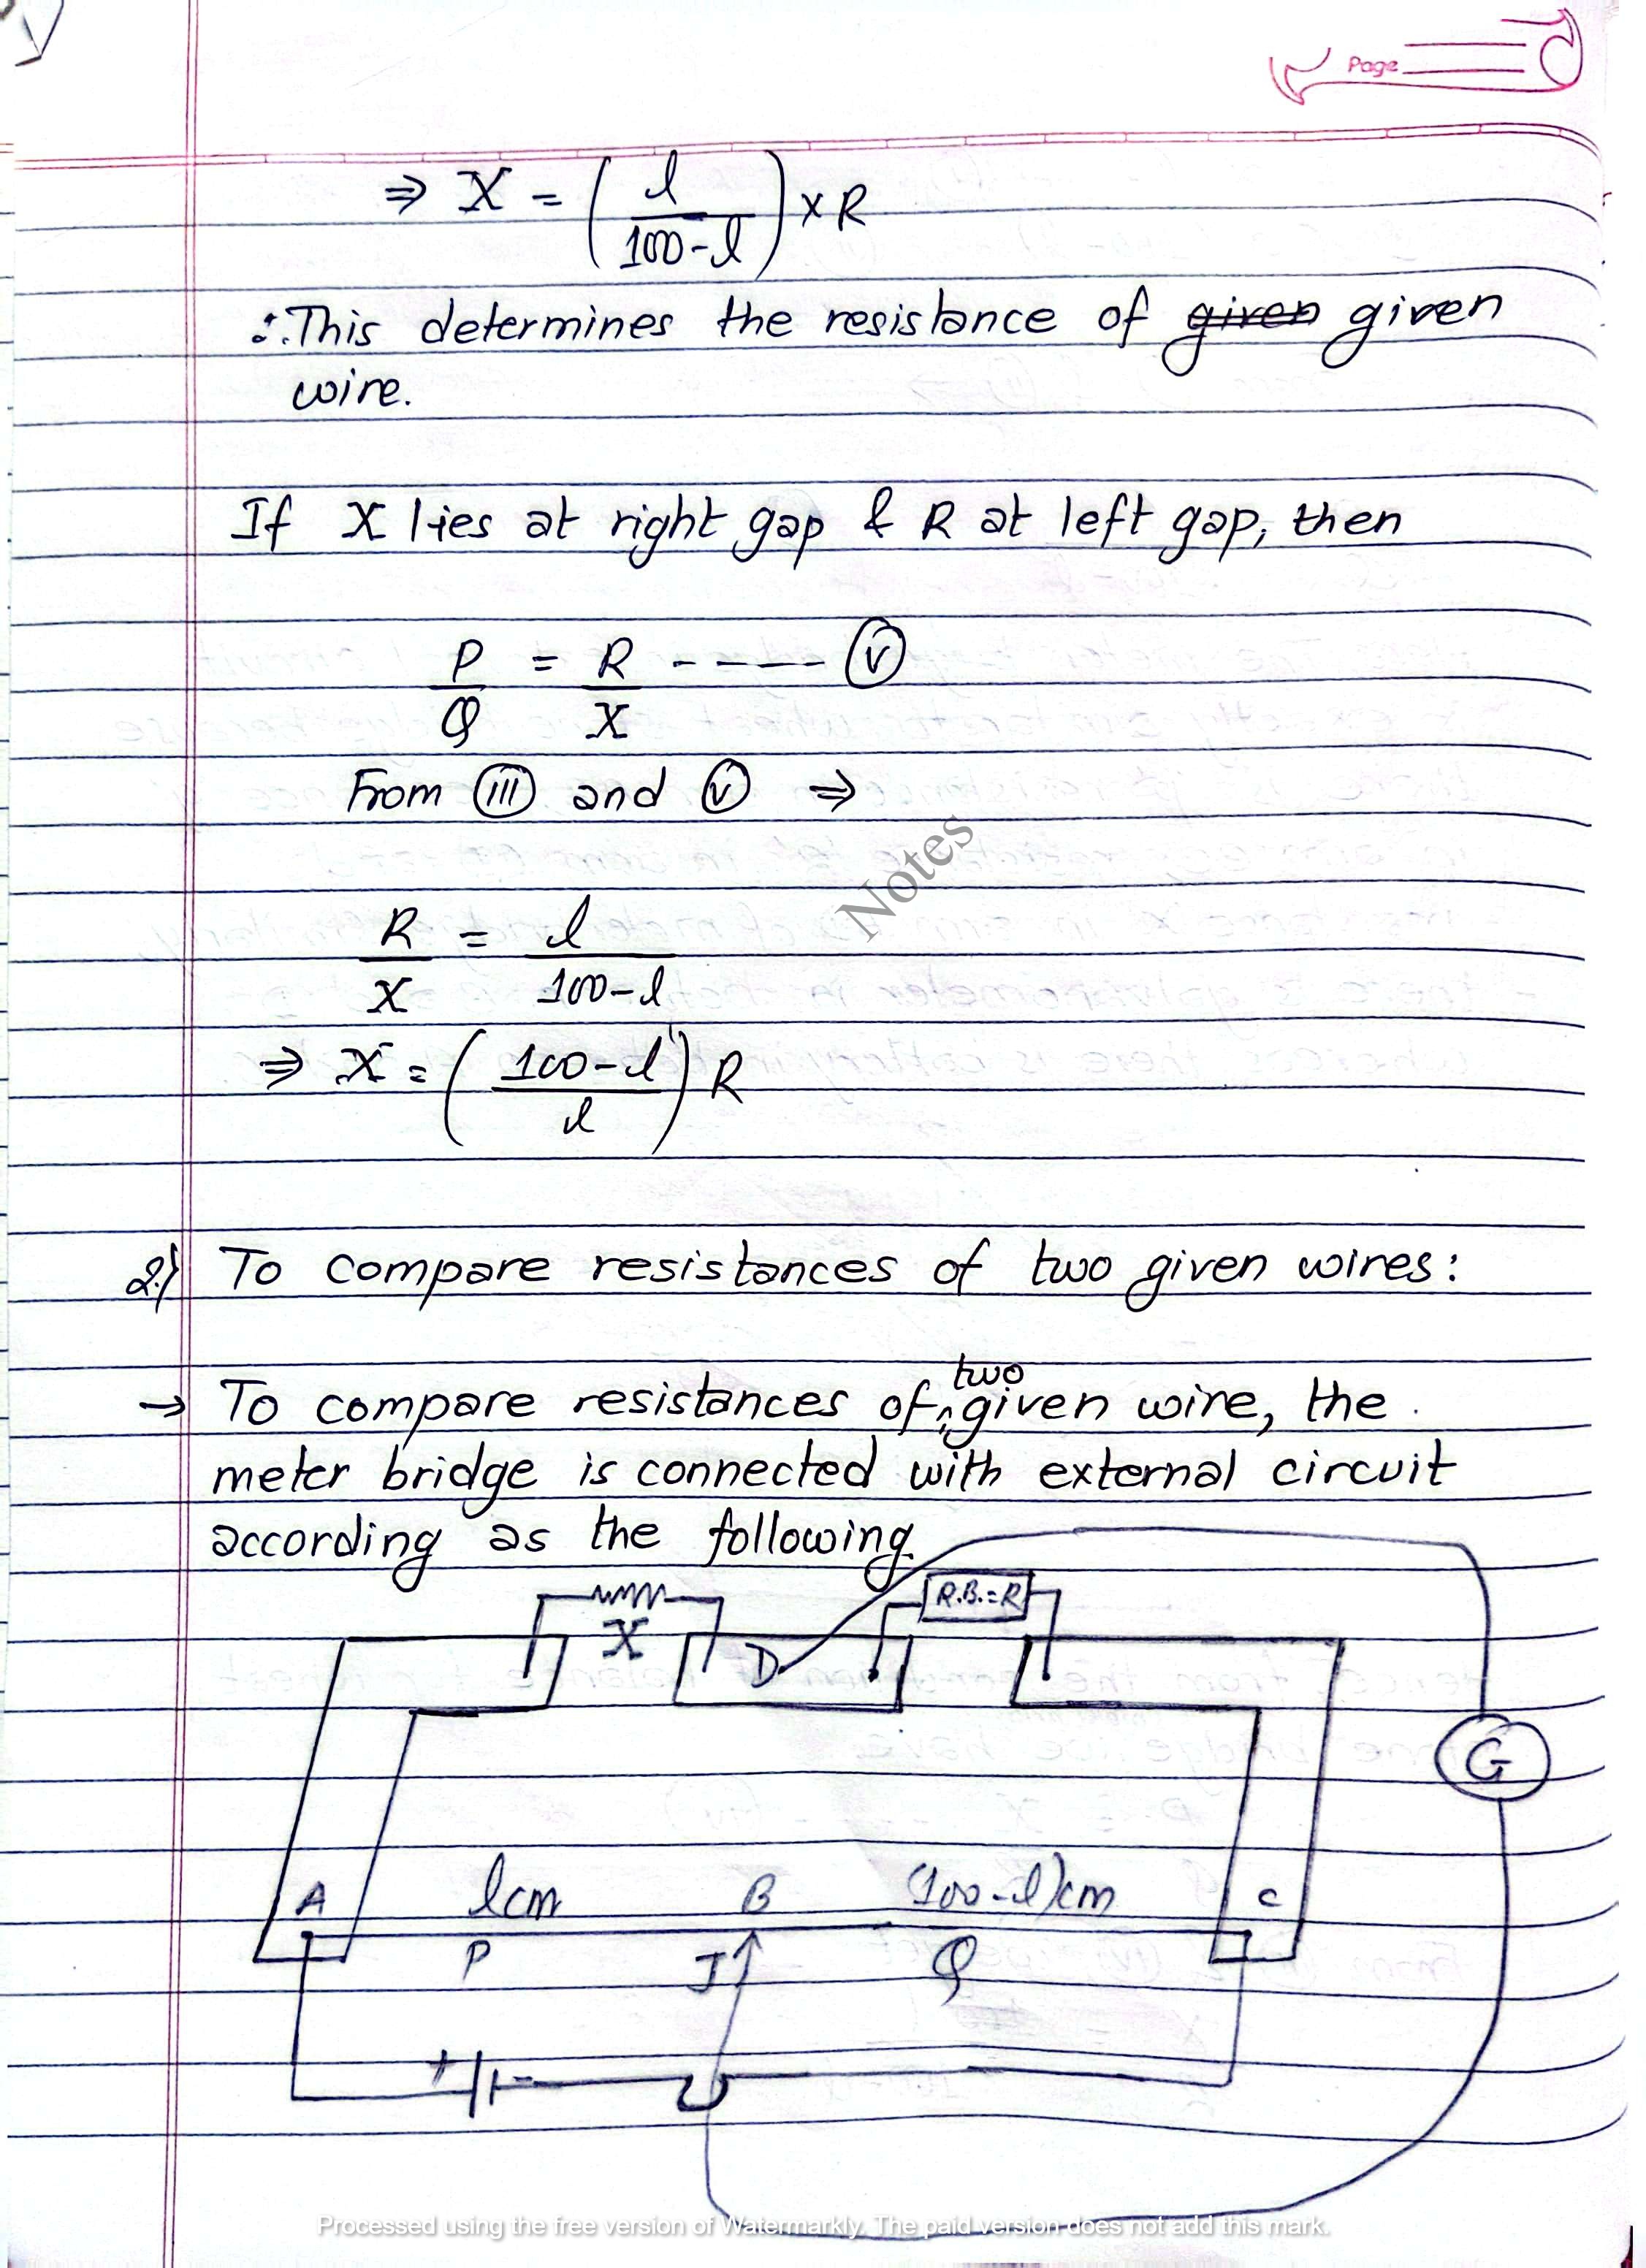 Page
⇒ X = (l / 100-l) × R
∴ This determines the resistance of given given
wire.
If X lies at right gap & R at left gap, then
P/Q = R/X ----- (v)
From (iii) and (v) ⇒
Notes
R/X = l / 100-l
⇒ X = (100-l / l) R
2.) To compare resistances of two given wires:
→ To compare resistances of two given wire, the
meter bridge is connected with external circuit
according as the following
R.B.=R
X
D
G
A l cm B (100-l)cm C
P J Q
+ -
Processed using the free version of Watermarkly. The paid version does not add this mark.